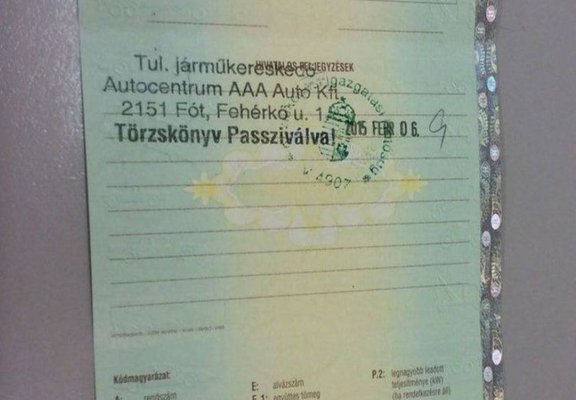 HIVATALOS FELJEGYZÉSEK
Tul. járműkereskedő
Autocentrum AAA Autó Kft.
2151 Fót, Fehérkő u. 1.
Törzskönyv Passziválva!
2015 FEBR 06.
4907
Kódmagyarázat:
A: rendszám
E: alvázszám
F.1: együttes tömeg
P.2: legnagyobb leadott
teljesítmény (kW)
(ha rendelkezésre áll)